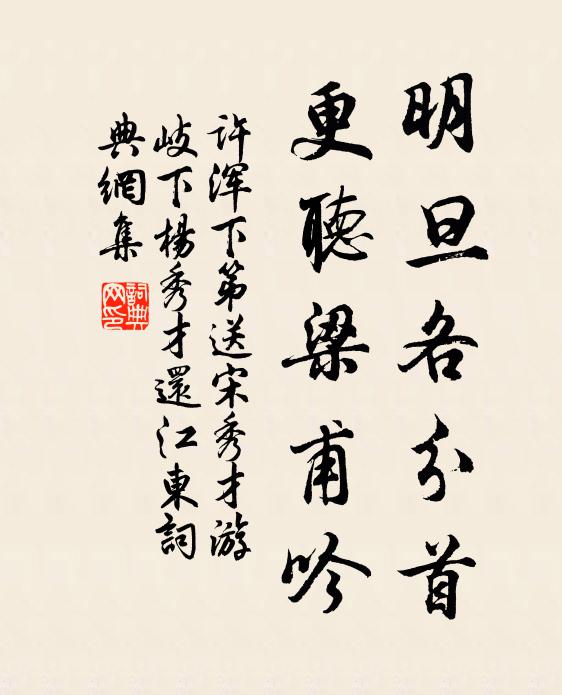 明旦各分首
更聽梁甫吟
许渾下第送宋秀才游
岐下楊秀才還江東詞
典網集
詞典网印